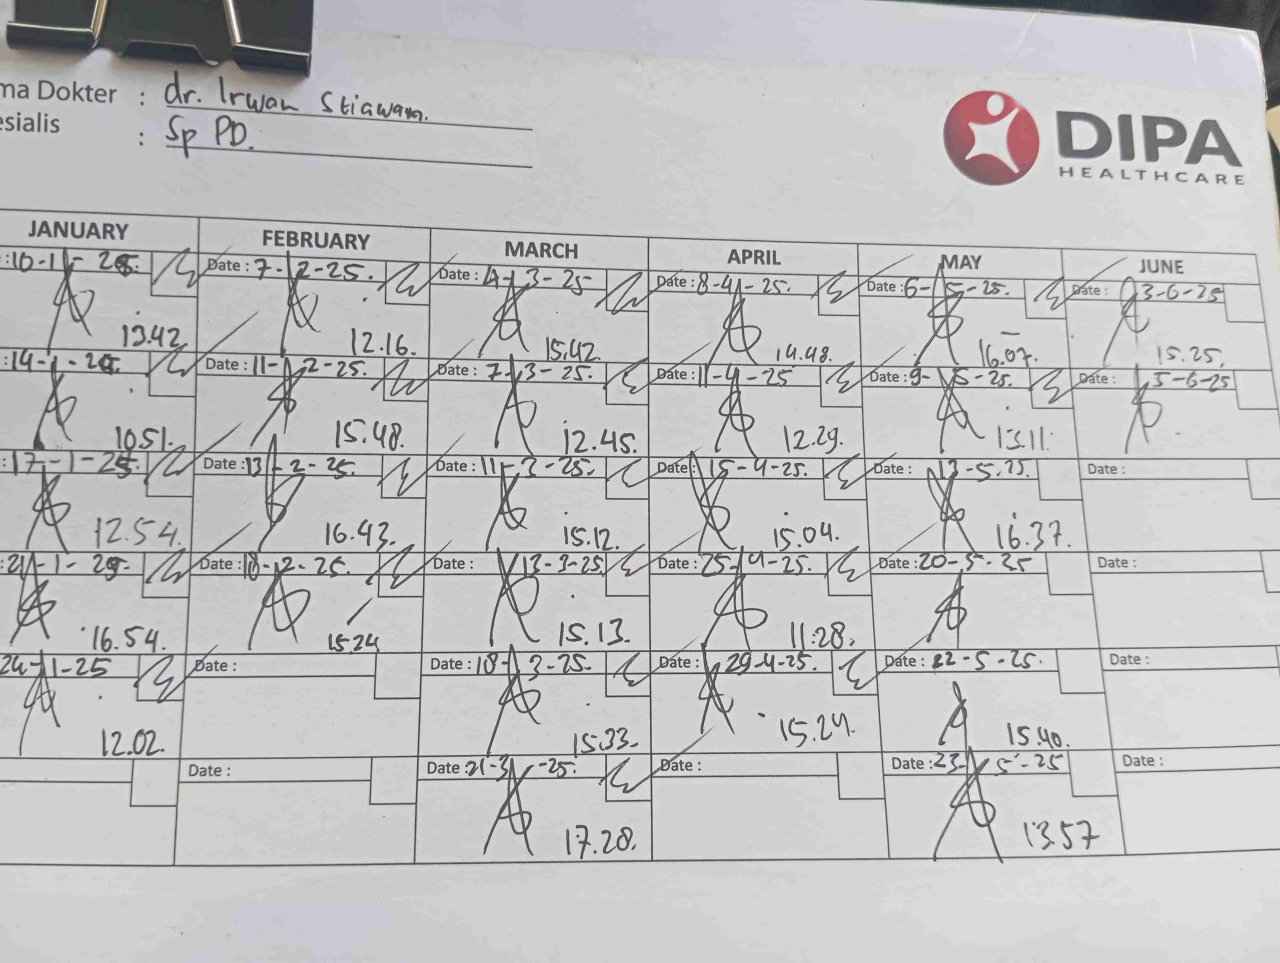 ma Dokter : dr. Irwan Stiawan.
esialis : Sp PD.
DIPA
HEALTHCARE
JANUARY FEBRUARY MARCH APRIL MAY JUNE
:10-1-25 Date : 7-2-25. Date : 4-3-25 Date : 8-4-25. Date : 6-5-25. Date : 3-6-25
13.42 12.16. 15.42. 14.48. 16.07. 15.25.
:14-1-25. Date : 11-2-25. Date : 7-3-25. Date : 11-4-25 Date : 9-5-25. Date : 5-6-25
10.51. 15.48. 12.45. 12.29. 13.11.
:17-1-25 Date : 13-2-25. Date : 11-3-25. Date : 15-4-25. Date : 13-5.25. Date :
12.54. 16.43. 15.12. 15.04. 16.37.
:21-1-25- Date : 18-2-25. Date : 13-3-25. Date : 25-4-25. Date : 20-5-25 Date :
16.54. 15.24 15.13. 11.28.
24-1-25 Date : Date : 18-3-25. Date : 29-4-25. Date : 22-5-25. Date :
12.02. 15.33. 15.24. 15.40.
Date : Date : 21-3-25. Date : Date : 23-5-25 Date :
17.28. 13.57